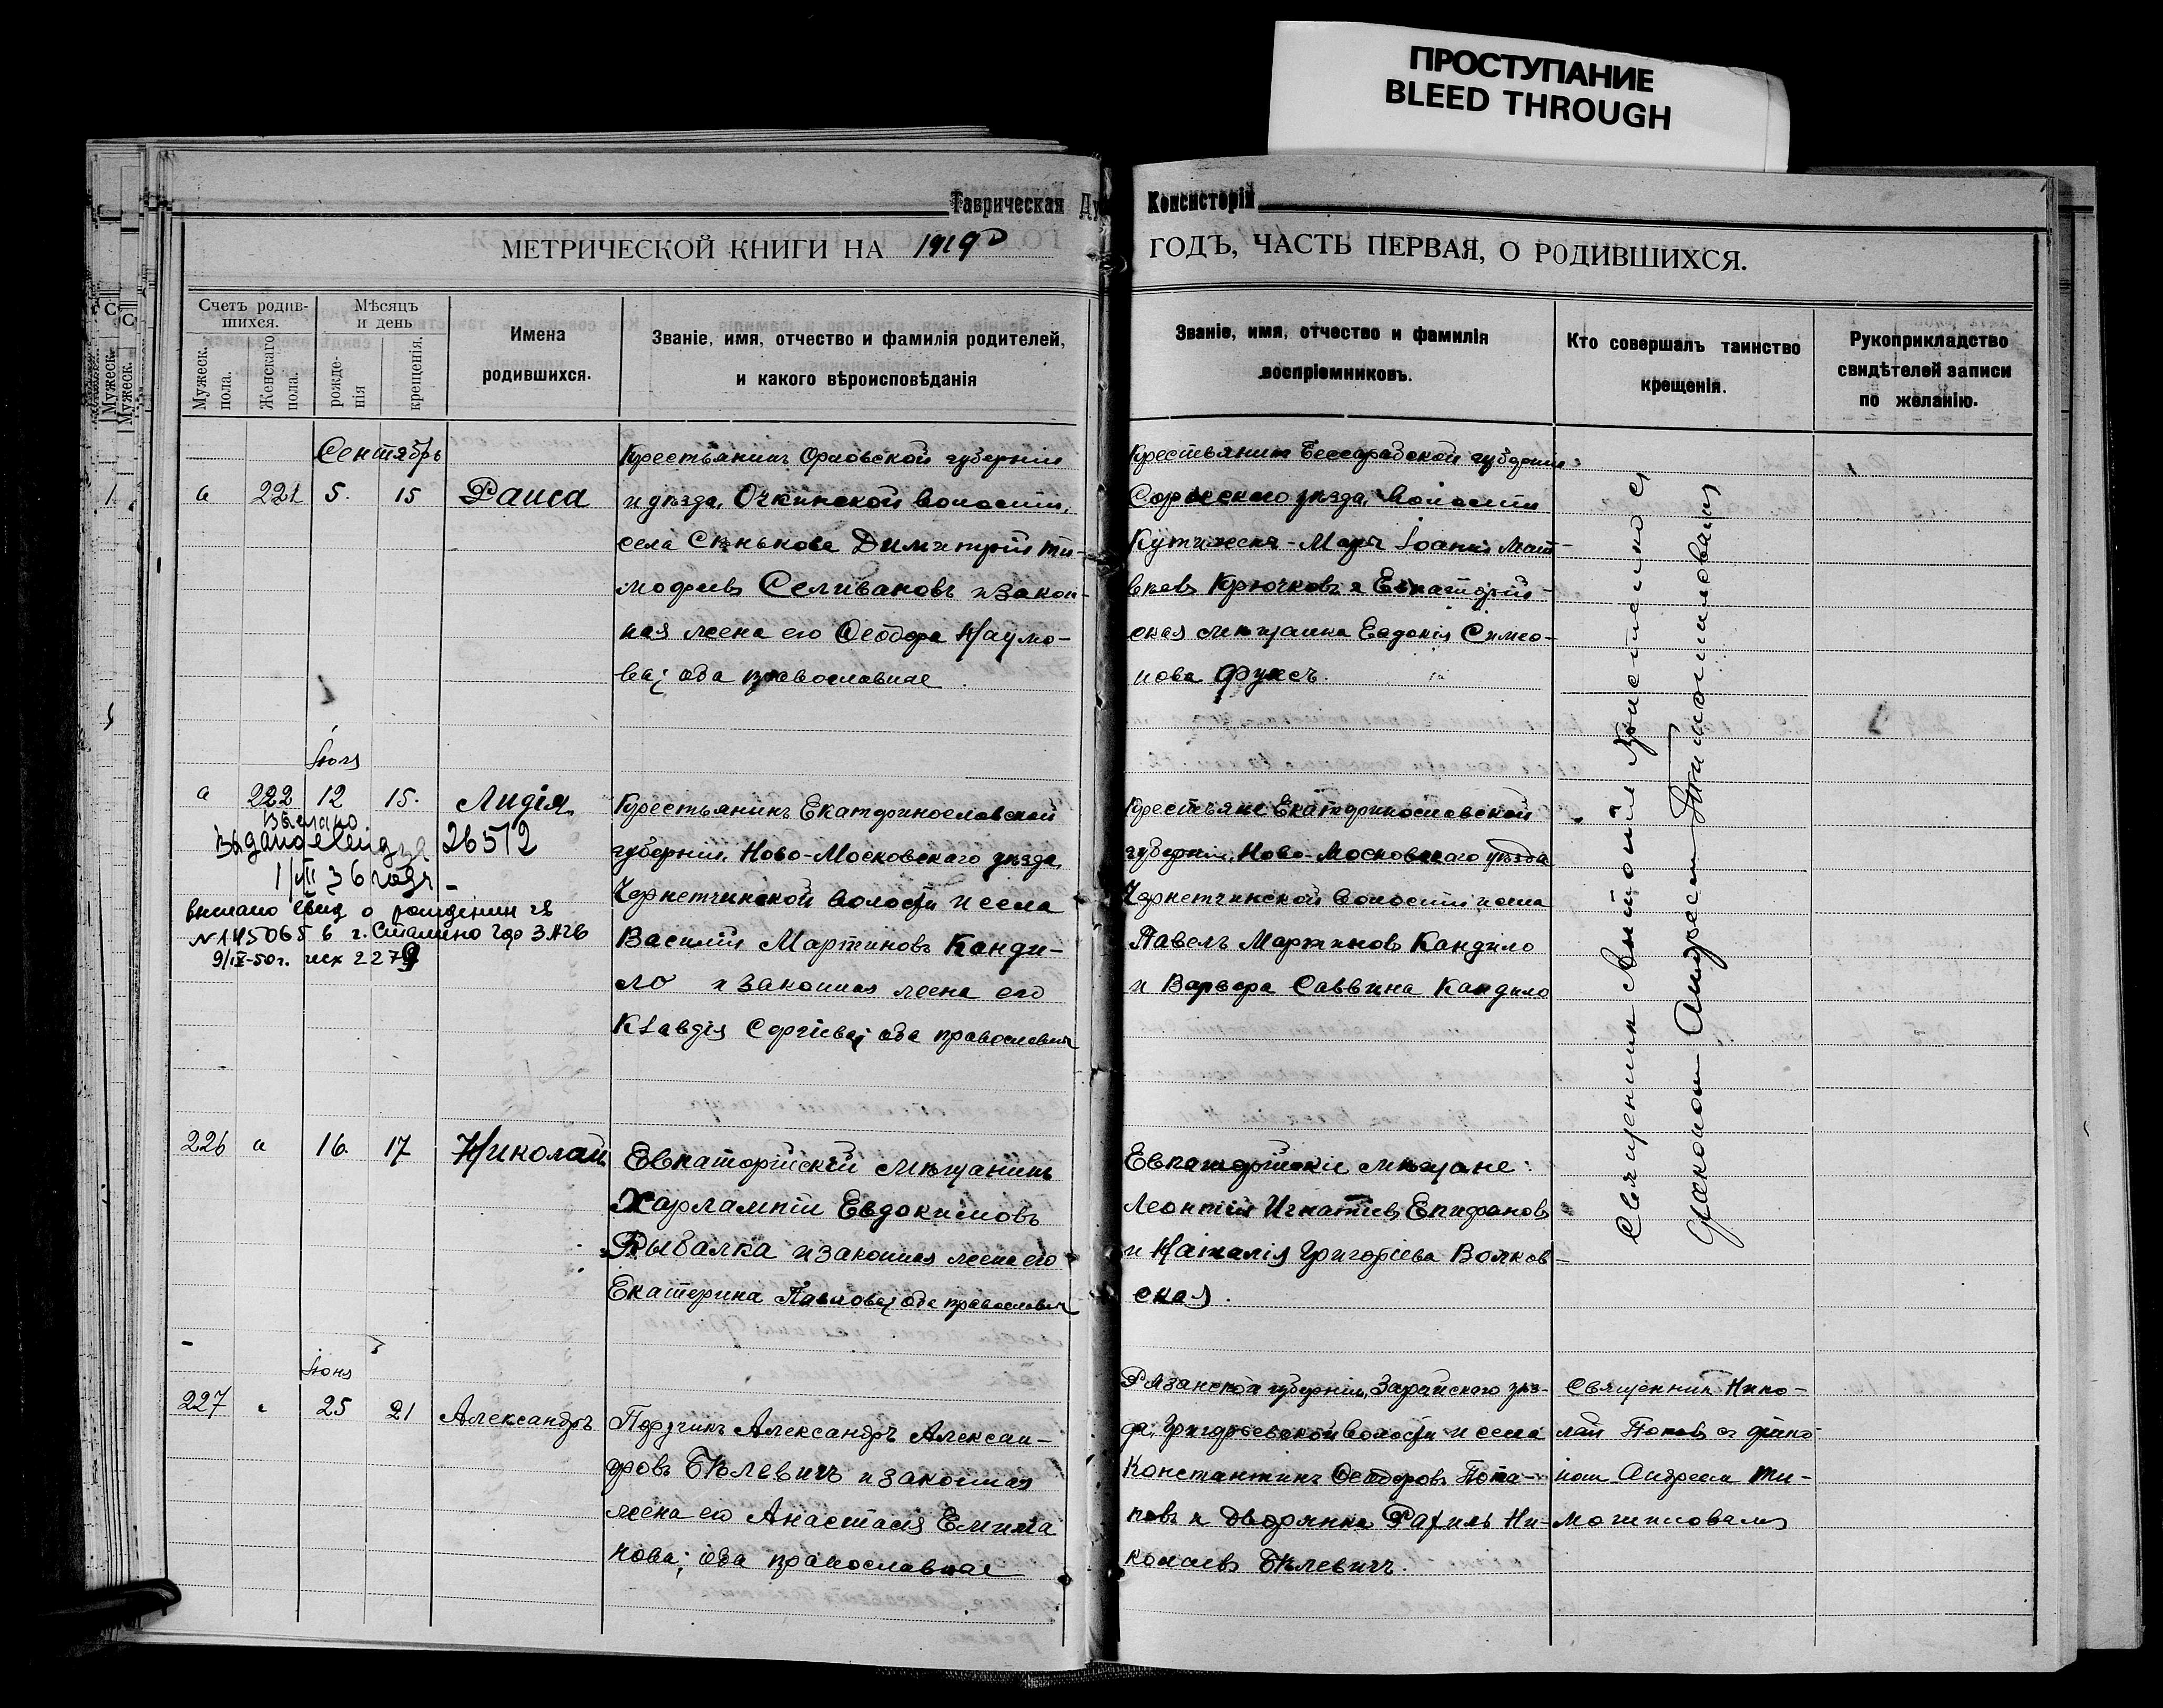 ПРОСТУПАНИЕ
BLEED THROUGH
Таврическая
Консисторіи
МЕТРИЧЕСКОЙ КНИГИ НА 1919
ГОДЪ, ЧАСТЬ ПЕРВАЯ, О РОДИВШИХСЯ.
Счетъ родив-
шихся.
Мужеск. пола.
Женскаго пола.
Мѣсяцъ
и день
рожде-
нія
крещенія.
Имена
родившихся.
Званіе, имя, отчество и фамилія родителей,
и какого вѣроисповѣданія
Званіе, имя, отчество и фамилія
воспріемниковъ.
Кто совершалъ таинство
крещенія.
Рукоприкладство
свидѣтелей записи
по желанію.
Сентябрь
221 5. 15 Раиса
Крестьянинъ Орловской губерніи
и уѣзда, Очкинской волости,
села Сѣнькова Димитрій Ти-
мофеевъ Селивановъ и закон-
ная жена его Ѳеодора Наумо-
ва; оба православные
Крестьянинъ Бессарабской губерніи
Сорокскаго уѣзда, волости
Іоаннъ Мат-
вѣевъ Крючковъ и Евпаторій-
ская мѣщанка Евдокія Симео-
нова Фуксъ.
Священникъ Антоній съ
діакономъ Андреемъ Тимошиловымъ
Іюля
222 12 15. Лидія
Выдано 26512
1/III 36 года
выслано свид о рождении гв
№ 145065 в г. Сталино Гор ЗАГС
9/IX-50г. исх 2279
Крестьянинъ Екатеринославской
губерніи, Ново-Московскаго уѣзда,
Чернетчинской волости и села
Василій Мартиновъ Канди-
ло и законная жена его
Клавдія Сергіева; оба православные
Крестьяне Екатеринославской
губерніи, Ново-Московскаго уѣзда
Чернетчинской волости и села
Павелъ Мартиновъ Кандило
и Варвара Саввина Кандило
226 16. 17 Николай
Евпаторійскій мѣщанинъ
Харлампій Евдокимовъ
Рыбалка и законная жена его
Екатерина Павлова; оба православные
Евпаторійскіе мѣщане:
Леонтій Игнатіевъ Епифановъ
и Наталія Григоріева Волков-
ская.
Іюня
227 25 21 Александръ
Поручикъ Александръ Алексан-
дровъ Бѣлевичъ и законная
жена его Анастасія
нова; оба православные
Рязанской губерніи, Зарайскаго уѣз-
да, Григорьевской волости и села
Константинъ Ѳеодоровъ Пота-
повъ и дворянка Рахиль Ни-
колаевъ Бѣлевичъ.
Священникъ Нико-
лай Поповъ съ діако-
номъ Андреемъ Ти-
мошиловымъ